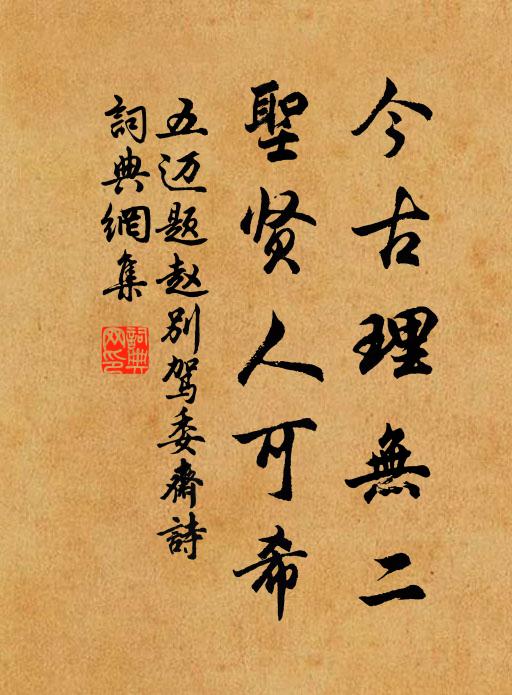 今古理無二
聖贤人可希
五迈题赵别駕委齋詩
詞典網集
詞典网印